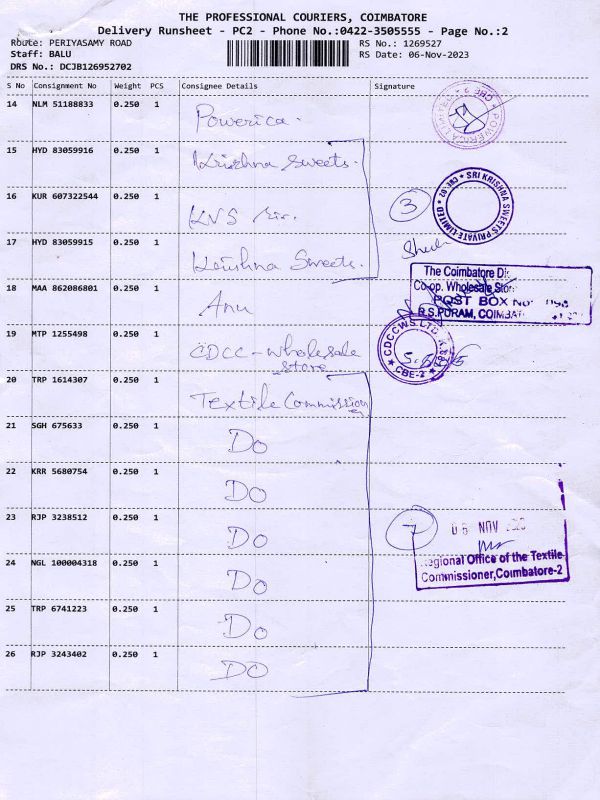 THE PROFESSIONAL COURIERS, COIMBATORE
Delivery Runsheet - PC2 - Phone No.:0422-3505555 - Page No.:2
Route: PERIYASAMY ROAD RS No.: 1269527
Staff: BALU RS Date: 06-Nov-2023
DRS No.: DCJB126952702
S No Consignment No Weight PCS Consignee Details Signature
14 NLM 51188833 0.250 1 Powerica.
15 HYD 83059916 0.250 1 Krishna Sweets.
16 KUR 607322544 0.250 1 KVS
3
SRI KRISHNA SWEETS PRIVATE LIMITED ★ CBE-02 ★
17 HYD 83059915 0.250 1 Krishna Sweets.
18 MAA 862086801 0.250 1 Anu
The Coimbatore
Co-op. Wholesale
POST BOX No:
R.S.PURAM,
19 MTP 1255498 0.250 1 CDCC - wholesale
store
CDCCWS LTD
★ CBE-2 ★
20 TRP 1614307 0.250 1 Textile Commission
21 SGH 675633 0.250 1 DO
22 KRR 5680754 0.250 1 DO
23 RJP 3238512 0.250 1 DO
7
NOV
24 NGL 100004318 0.250 1 DO
Regional Office of the Textile
Commissioner,Coimbatore-2
25 TRP 6741223 0.250 1 DO
26 RJP 3243402 0.250 1 DO